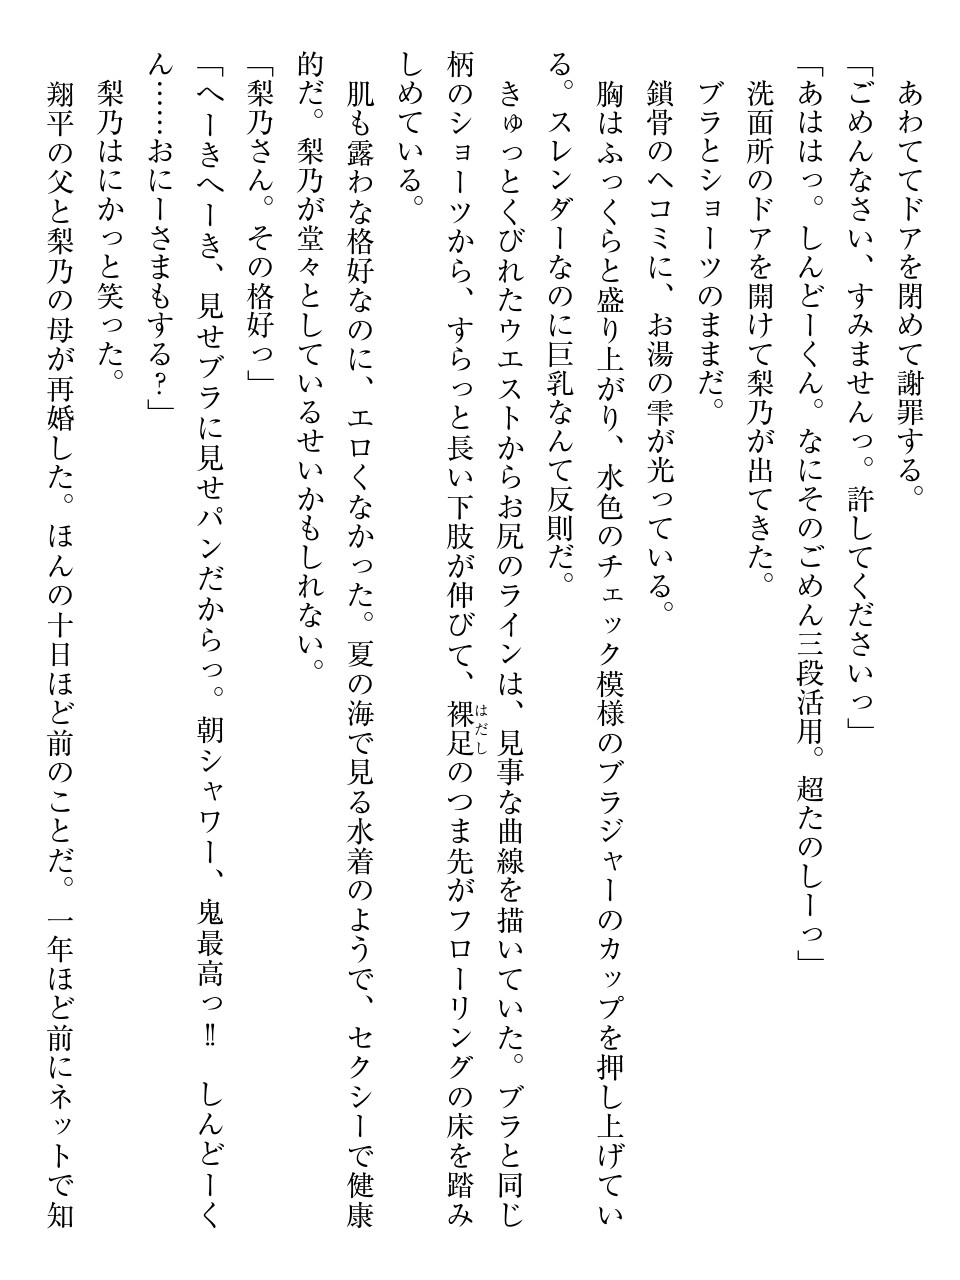 あわててドアを閉めて謝罪する。
「ごめんなさい、すみませんっ。許してくださいっ」
「あははっ。しんどーくん。なにそのごめん三段活用。超たのしーっ」
洗面所のドアを開けて梨乃が出てきた。
ブラとショーツのままだ。
鎖骨のヘコミに、お湯の雫が光っている。
胸はふっくらと盛り上がり、水色のチェック模様のブラジャーのカップを押し上げてい
る。スレンダーなのに巨乳なんて反則だ。
きゅっとくびれたウエストからお尻のラインは、見事な曲線を描いていた。ブラと同じ
柄のショーツから、すらっと長い下肢が伸びて、裸足のつま先がフローリングの床を踏み
はだし
しめている。
肌も露わな格好なのに、エロくなかった。夏の海で見る水着のようで、セクシーで健康
的だ。梨乃が堂々としているせいかもしれない。
「梨乃さん。その格好っ」
「へーきへーき、見せブラに見せパンだからっ。朝シャワー、鬼最高っ‼　しんどーく
ん……おにーさまもする？」
梨乃はにかっと笑った。
翔平の父と梨乃の母が再婚した。ほんの十日ほど前のことだ。一年ほど前にネットで知